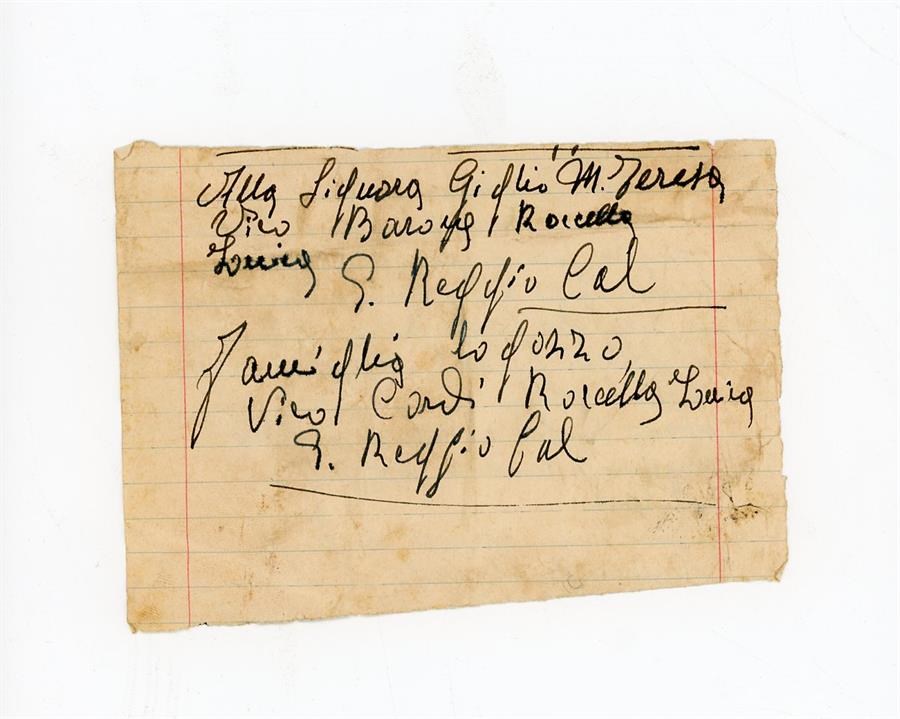 Alla Signora Giglio M. Teresa
Vico Barone Roccella
Ionica
G. Reggio Cal
Famiglia Logozzo
Vico Cordi Roccella Ionica
G. Reggio Cal